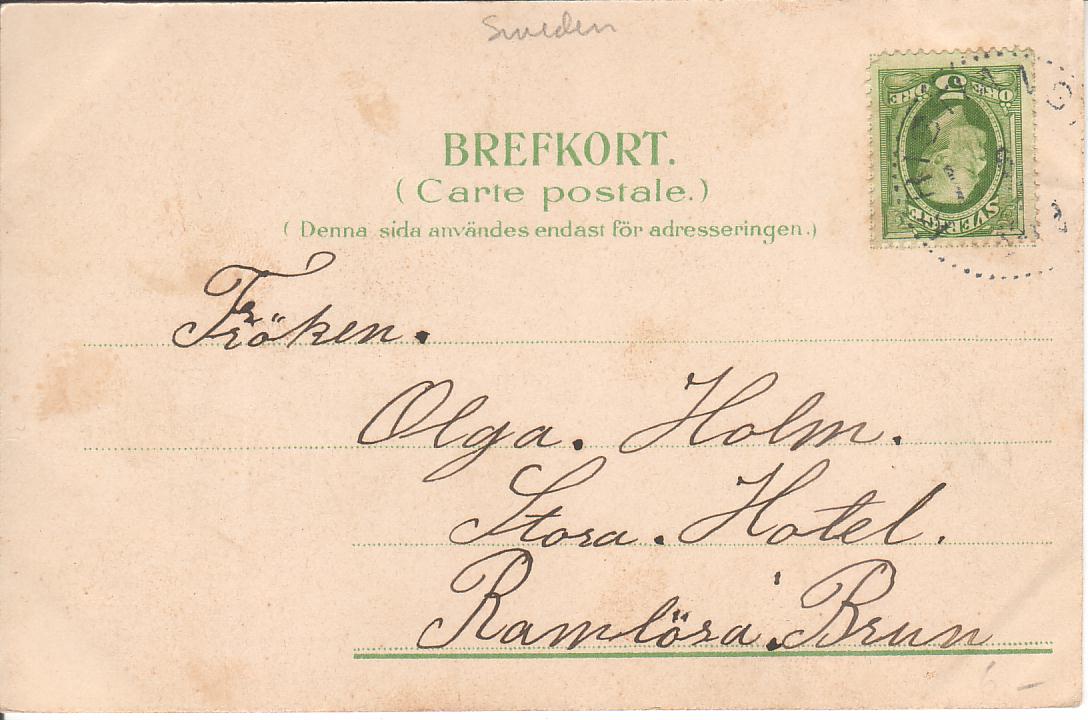 Sweden
BREFKORT.
(Carte postale.)
(Denna sida användes endast för adresseringen.)
5
ÖRE ÖRE
SVERIGE
Fröken.
Olga. Holm.
Stora. Hotel.
Ramlösa. Brun
6 –